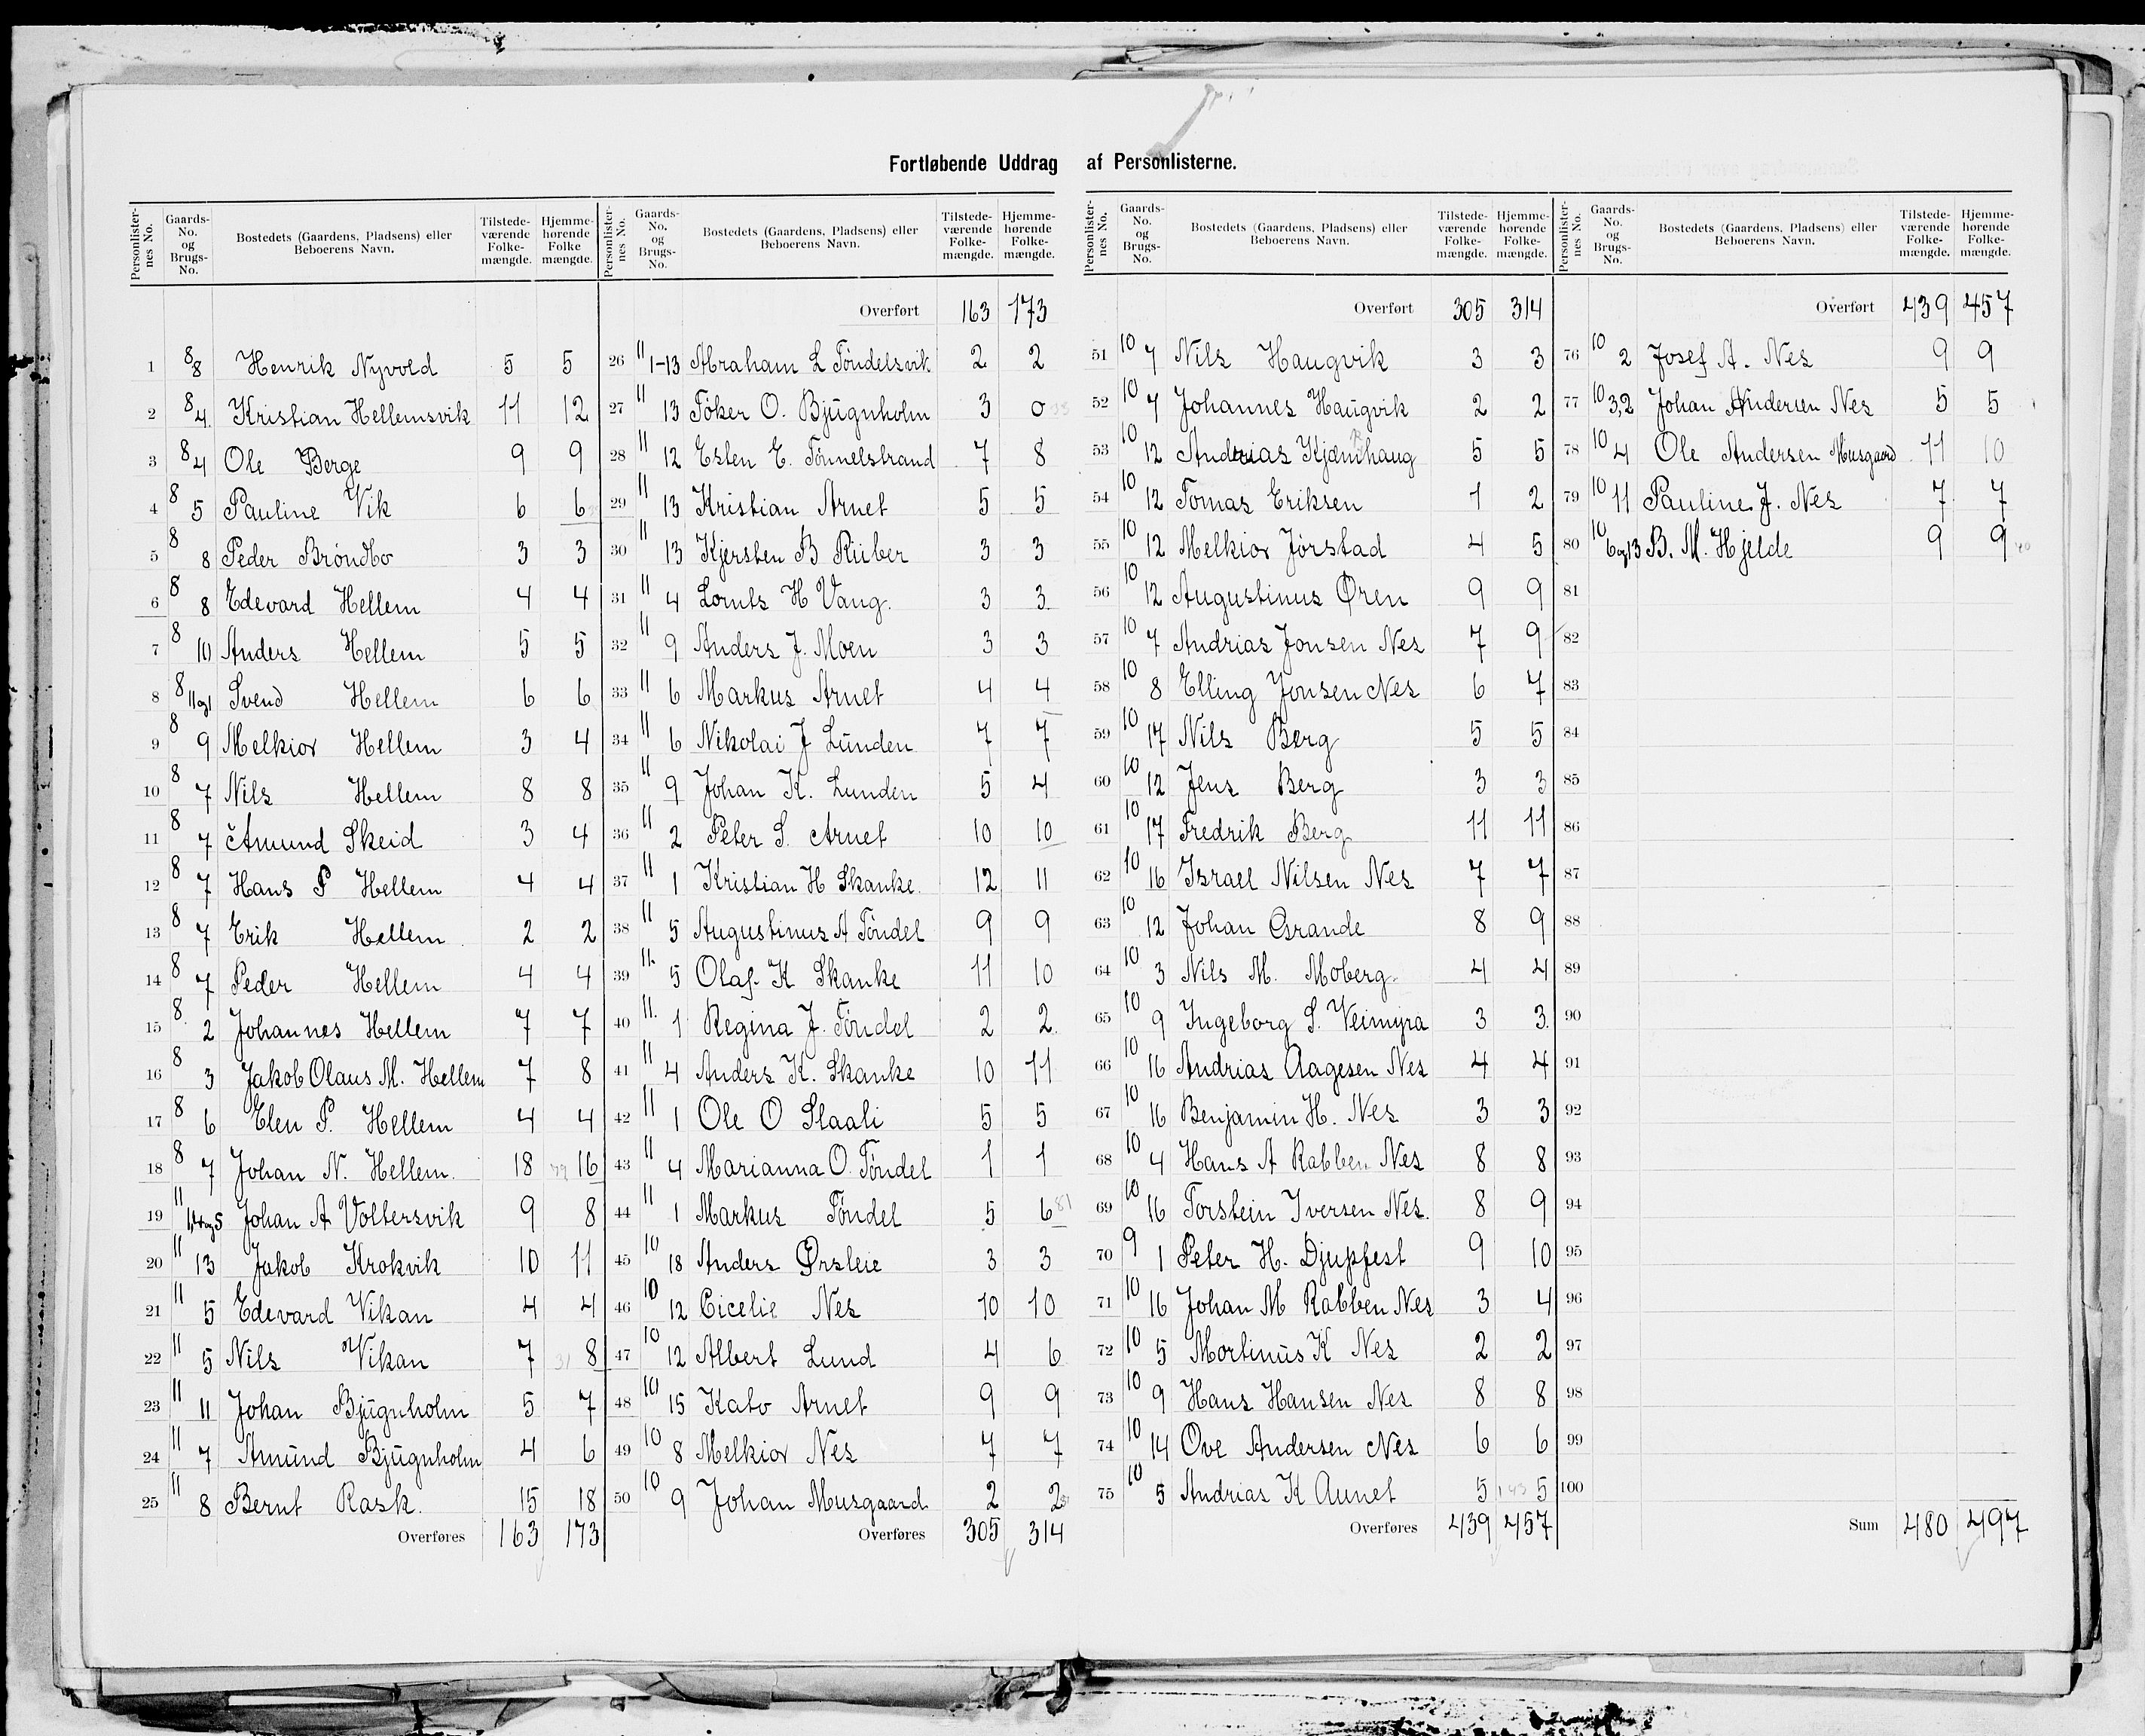 Fortløbende Uddrag af Personlisterne.
Personlister-nes No. Gaards-No. og Brugs-No. Bostedets (Gaardens, Pladsens) eller Beboerens Navn. Tilstede-værende Folke-mængde. Hjemme-hørende Folke mængde.
1 8 8 Henrik Nyvold 5 5
2 8 4 Kristian Hellemsvik 11 12
3 8 4 Ole Berge 9 9
4 8 5 Pauline Vik 6 6
5 8 8 Peder Bröndbo 3 3
6 8 8 Edevard Hellem 4 4
7 8 10 Anders Hellem 5 5
8 8 11og1 Svend Hellem 6 6
9 8 9 Melkior Hellem 3 4
10 8 7 Nils Hellem 8 8
11 8 7 Amund Skeid 3 4
12 8 7 Hans P Hellem 4 4
13 8 7 Erik Hellem 2 2
14 8 7 Peder Hellem 4 4
15 8 2 Johannes Hellem 7 7
16 8 3 Jakob Olaus M. Hellem 7 8
17 8 6 Elen P. Hellem 4 4
18 8 7 Johan N. Hellem. 18 16
19 11 Johan A Voltersvik 9 8
20 11 13 Jakob Krokvik 10 11
21 11 5 Edevard Vikan 4 4
22 11 5 Nils Vikan 7 8
23 11 11 Johan Bjugnholm 5 7
24 11 7 Amund Bjugnholm 4 6
25 11 8 Bernt Rask. 15 18
Overføres 163 173
Personlister-nes No. Gaards-No. og Brugs-No. Bostedets (Gaardens, Pladsens) eller Beboerens Navn. Tilstede-værende Folke-mængde. Hjemme-hørende Folke-mængde.
Overført 163 173
26 11 1-13 Abraham L Töndelsvik 2 2
27 11 13 Töker O. Bjugnholm 3 0
28 11 12 Esten E. Tönnelstrand 7 8
29 11 13 Kristian Arnet 5 5
30 11 13 Kjersten B Riiber 3 3
31 11 4 Lornts H Vang. 3 3
32 11 9 Anders J. Moen 3 3
33 11 6 Markus Arnet 4 4
34 11 6 Nikolai J Lunden 7 7
35 11 9 Johan K. Lunden 5 4
36 11 2 Peter S. Arnet 10 10
37 11 1 Kristian H Skanke 12 11
38 11 5 Augustinus A Töndel 9 9
39 11. 5 Olaf K Skanke 11 10
40 11. 1 Regina J. Töndel 2 2
41 11 4 Anders K. Skanke 10 11
42 11 1 Ole O Slaali 5 5
43 11 4 Marianna O. Töndel 1 1
44 11 1 Markus Töndel 5 6
45 10 18 Anders Ørsleie 3 3
46 10 12 Cicelie Nes 10 10
47 10 12 Albert Lund 4 6
48 10 15 Kato Arnet 9 9
49 10 8 Melkior Nes 7 7
50 10 9 Johan Musgaard 2 2
Overføres 305 314
Personlister-nes No. Gaards-No. og Brugs-No. Bostedets (Gaardens, Pladsens) eller Beboerens Navn. Tilstede-værende Folke-mængde. Hjemme-hørende Folke-mængde.
Overført 305 314
51 10 7 Nils Haugvik 3 3
52 10 7 Johannes Haugvik 2 2
53 10 12 Andreias 5 5
54 10 12 Tomas Eriksen 1 2
55 10 12 Melkior Jörstad 4 5
56 10 12 Augustinus Øren 9 9
57 10 7 Andrias Jonsen Nes 7 9
58 10 8 Elling Jonsen Nes 6 7
59 10 17 Nils Berg 5 5
60 10 12 Jens Berg 3 3
61 10 17 Fredrik Berg 11 11
62 10 16 Israel Nilsen Nes 7 7
63 10 12 Johan Grande 8 9
64 10 3 Nils M. Moberg. 4 4
65 10 9 Ingeborg S. Veimyra 3 3.
66 10 16 Andrias Aagesen Nes 4 4
67 10 16 Benjamin H. Nes 3 3
68 10 4 Hans A Rabben Nes 8 8
69 10 16 Torstein Iversen Nes. 8 9
70 9 1 Peter H. Djupfest 9 10
71 10 16 Johan M Rabben Nes 3 4
72 10 5 Mortinus K Nes 2 2
73 10 9 Hans Hansen Nes 8 8
74 10 14 Ove Andersen Nes 6 6
75 10 5 Andrias K Aunet 5 5
Overføres 439 457
Personlister-nes No. Gaards-No. og Brugs-No. Bostedets (Gaardens, Pladsens) eller Beboerens Navn. Tilstede-værende Folke-mængde. Hjemme-hørende Folke-mængde.
Overført 439 457
76 10 2 Josef A. Nes 9 9
77 10 3,2 Johan Andersen Nes 5 5
78 10 4 Ole Andersen Musgaard 11 10
79 10 11 Pauline J. Nes 7 7
80 10 6og13 B. M. Hjelde 9 9
81
82
83
84
85
86
87
88
89
90
91
92
93
94
95
96
97
98
99
100
Sum 480 497